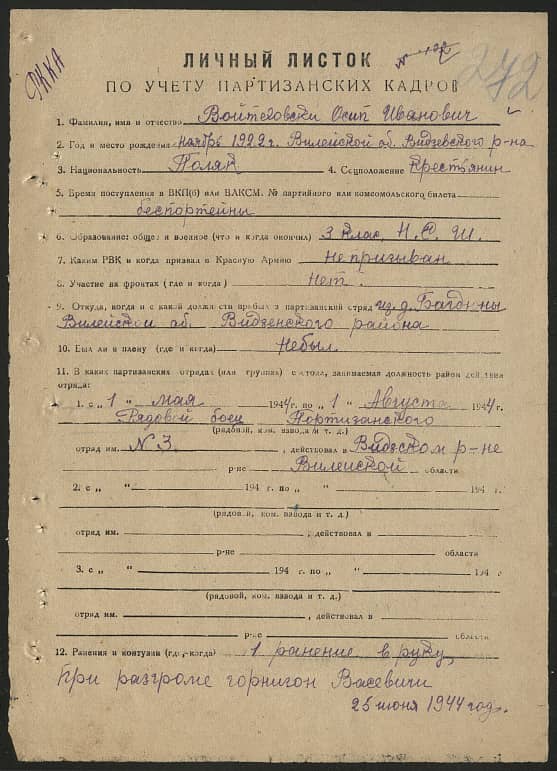 РККА
272
ЛИЧНЫЙ ЛИСТОК
ПО УЧЕТУ ПАРТИЗАНСКИХ КАДРОВ
1. Фамилия, имя и отчество Войтеховски Осип Иванович
2. Год и место рождения ноябрь 1922 г. Вилейской об. Видзевского р-на
3. Национальность Поляк 4. Соцположение Крестьянин
5. Время поступления в ВКП(б) или ВЛКСМ. № партийного или комсомольского билета
беспортейны
6. Образование: общее и военное (что и когда окончил) 3 клас. Н. С. Ш.
7. Каким РВК и когда призван в Красную Армию Непризыван
8. Участие на фронтах (где и когда) Нет.
9. Откуда, когда и с какой должности прибыл в партизанский отряд из д. Багдюны
Вилейской об. Видзенского района
10. Был ли в плену (где и когда) Небыл
11. В каких партизанских отрядах (или группах) состоял, занимаемая должность район действия
отряда:
1. с „ 1 “ мая 1944 г. по „ 1 “ Августа 1944 г.
Рядовой боец Портизанского
(рядовой, ком. взвода и т. д.)
отряд им. N 3. , действовал в Видзском р-не
р-не Вилейской области
2. с „ “ 194 г. по „ “ 194 г.
(рядовой, ком. взвода и т. д.)
отряд им. , действовал в
р-не области
3. с „ “ 194 г. по „ “ 194 г
(рядовой, ком. взвода и т. д.)
отряд им. , действовал в
р-не области
12. Ранения и контузии (где, когда) 1 ранение в руку,
При разгроме горнигон Васевичи
25 июня 1944 год.